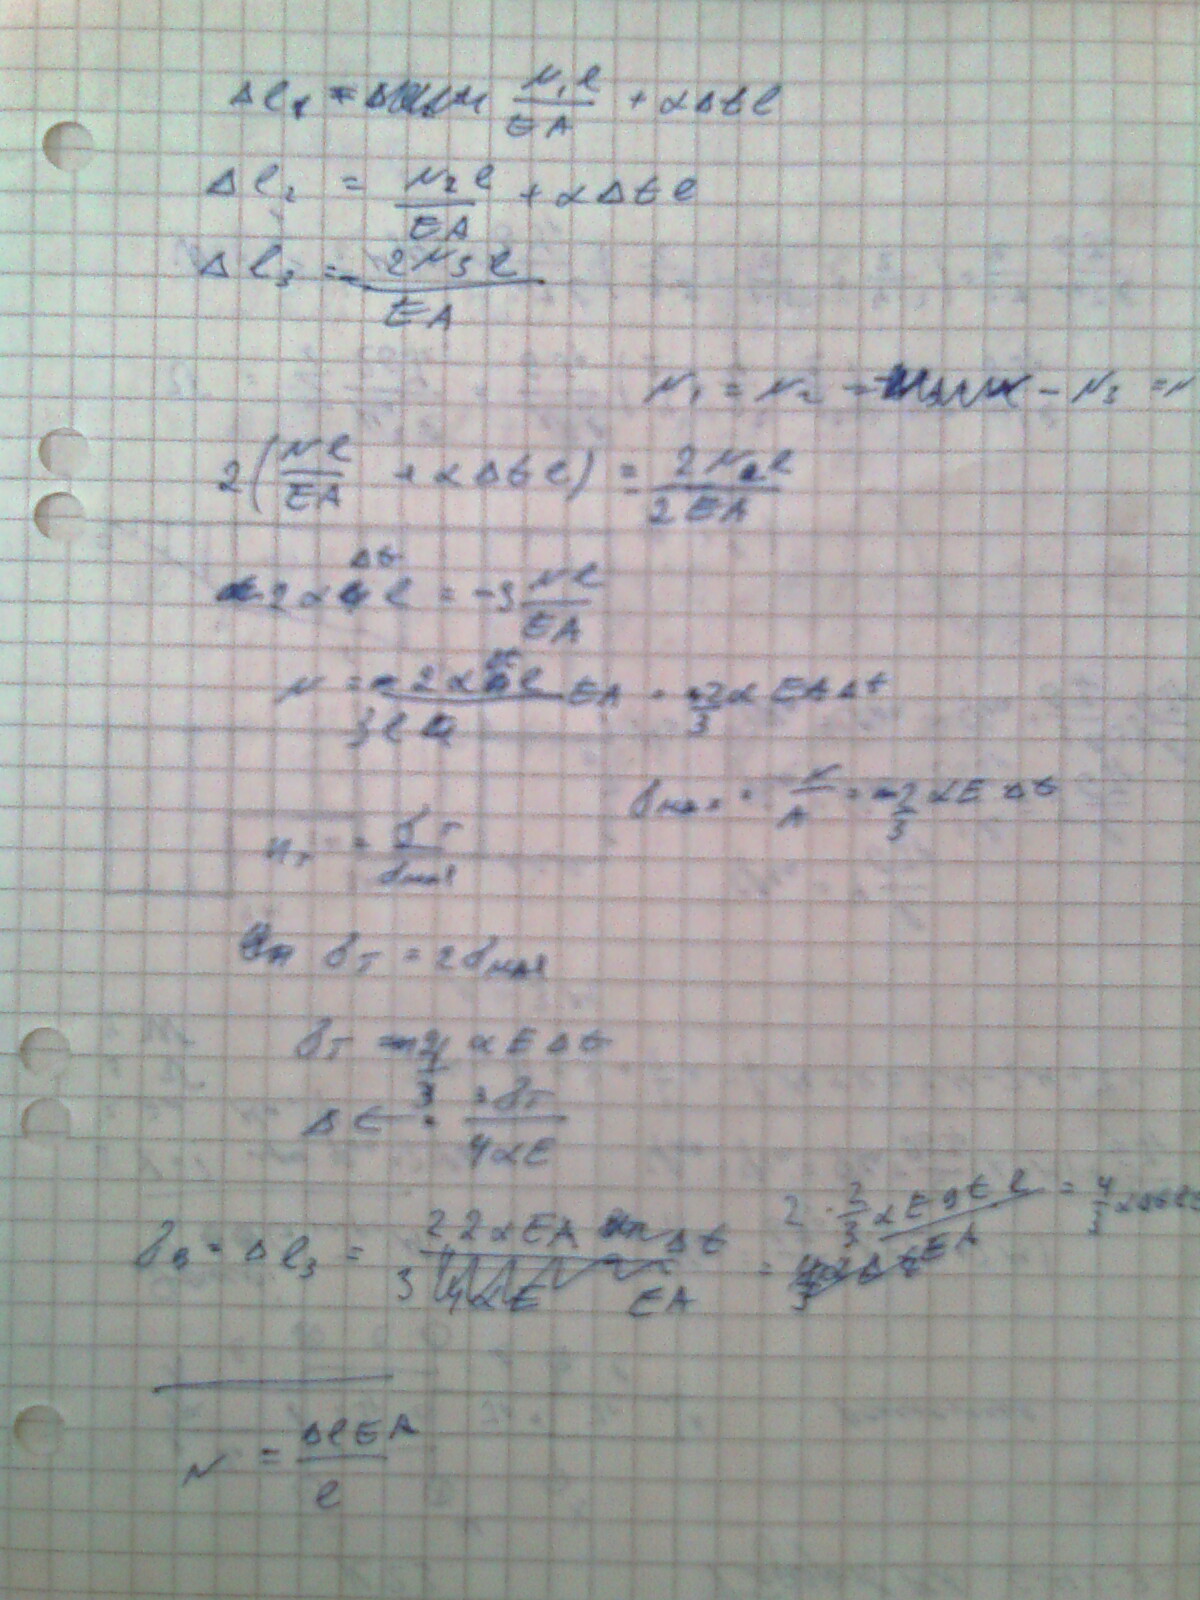 Δl₁ = N₁l/EA + αΔtl
Δl₂ = N₂l/EA + αΔtl
Δl₃ = 2N₃l/EA
N₁ = N₂ = - N₃ = N
2(Nl/EA + αΔtl) = 2Nl/2EA
2αΔtl = -3 Nl/EA
N = -2αΔtl/3l EA = -2/3 αEAΔt
σмах = N/A = -2/3 αEΔt
nт = σт/σмах
σт = 2σмах
σт = 4/3 αEΔt
Δt = 3σт/4αE
δв = Δl₃ = 2 2αEA Δt/3 EA = 2 · 2/3 αEΔtl/EA = 4/3 αΔtl
N = ΔlEA/l